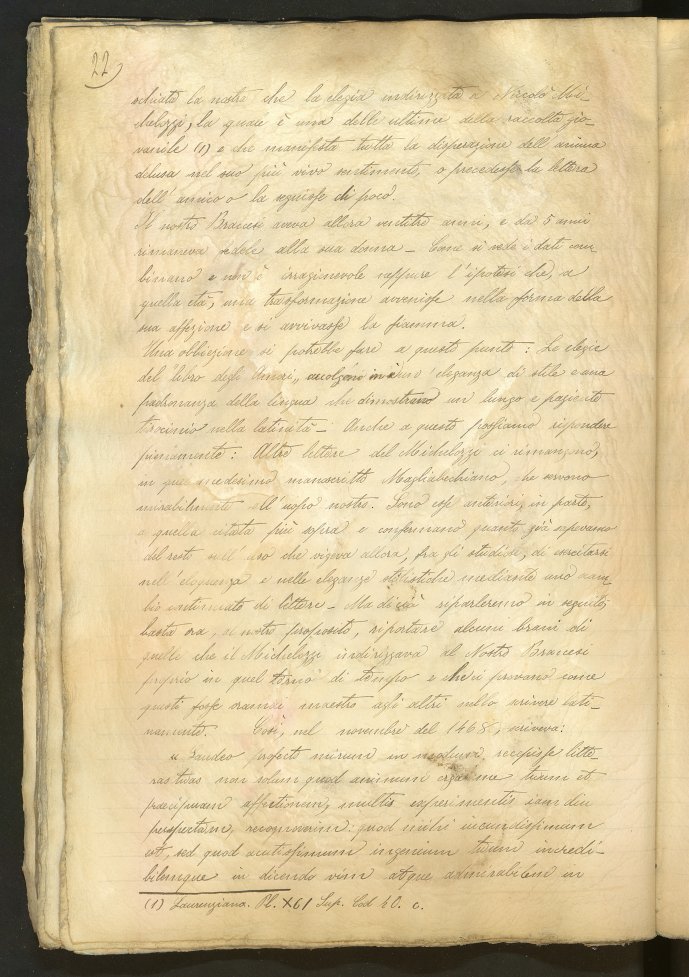 22
schiato la nostra che la elegia indirizzata a Niccolò Mi-
chelozzi, la quale è una delle ultime della raccolta gio-
vanile (1) e che manifesta tutta la disperazione dell'anima
delusa nel suo più vivo sentimento, o precedesse la lettera
dell'amico o la seguisse di poco.
Il nostro Braccesi aveva allora ventitre anni, e da 5 anni
rimaneva fedele alla sua donna – Come si vede i dati com-
binano e non è irragionevole neppure l'ipotesi che, a
quella età, una trasformazione avvenisse nella forma della
sua affezione e si avvivasse la fiamma.
Una obbiezione si potrebbe fare a questo punto: Le elegie
del "libro degli Amori„ accolgono in è una eleganza di stile e una
padronanza della lingua che dimostrano un lungo e paziente
tirocinio nella latinità – Anche a questo possiamo rispondere
pienamente: Altre lettere del Michelozzi ci rimangono,
in quel medesimo manoscritto Magliabechiano, che servono
mirabilmente all'uopo nostro. Sono esse anteriori, in parte,
a quella citata più sopra e confermano quanto già sapevamo
del resto sull'uso che vigeva allora, fra gli studiosi, di esercitarsi
nell'eloquenza e nelle eleganze stilistiche mediante uno scam-
bio continuato di lettere – Ma di ciò riparleremo in seguito;
basta ora, al nostro proposito, riportare alcuni brani di
quelle che il Michelozzi indirizzava al Nostro Braccesi
proprio in quel torno di tempo e che ci provano come
questi fosse oramai maestro agli altri nello scrivere lati-
namente. Così, nel novembre del 1468, scriveva:
« Gaudeo profecto mirum in modum recepisse litte-
ras tuas non solum quod animum erga me tuum et
praecipuam affectionem, multis experimentis iam diu
perspectam, recognoverim: quod mihi iucundissimum
est, sed quod acutissimum ingenium tuum incredi-
bilemque in dicendo vim atque admirabilem in
(1) Laurenziana. Pl. X61 Sup. Cod 40. c.